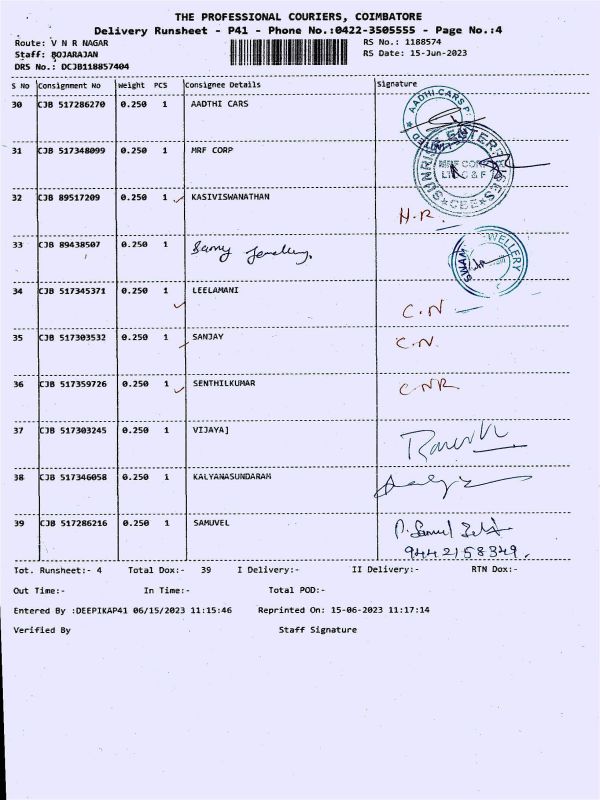 THE PROFESSIONAL COURIERS, COIMBATORE
Delivery Runsheet - P41 - Phone No.:0422-3505555 - Page No.:4
Route: V N R NAGAR RS No.: 1188574
Staff: BOJARAJAN RS Date: 15-Jun-2023
DRS No.: DCJB118857404
S No Consignment No Weight PCS Consignee Details Signature
30 CJB 517286270 0.250 1 AADTHI CARS
AADHI CARS
31 CJB 517348099 0.250 1 MRF CORP
SUNRISE ENTERPRISES
MRF CORP
C & F
★CBE★
32 CJB 89517209 0.250 1 KASIVISWANATHAN
H.R.
33 CJB 89438507 0.250 1 Jewellery.
SWAMY JEWELLERY
34 CJB 517345371 0.250 1 LEELAMANI
C.N
35 CJB 517303532 0.250 1 SANJAY C.N.
36 CJB 517359726 0.250 1 SENTHILKUMAR CNR
37 CJB 517303245 0.250 1 VIJAYA]
38 CJB 517346058 0.250 1 KALYANASUNDARAM
39 CJB 517286216 0.250 1 SAMUVEL P. Samuel
9442158349.
Tot. Runsheet:- 4 Total Dox:- 39 I Delivery:- II Delivery:- RTN Dox:-
Out Time:- In Time:- Total POD:-
Entered By :DEEPIKAP41 06/15/2023 11:15:46 Reprinted On: 15-06-2023 11:17:14
Verified By Staff Signature